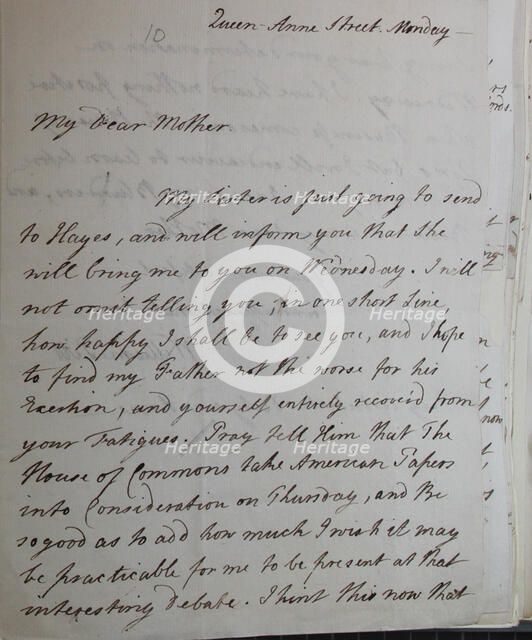 10
Queen-Anne Street. Monday
My Dear Mother.
My Sister is just going to send
to Hayes, and will inform you that she
will bring me to you on Wednesday. I will
not omit telling you, in one short Line,
how happy I shall be to see you, and I hope
to find my Father not the worse for his
Exertion, and yourself entirely recoverd from
your Fatigues. Pray tell Him that The
House of Commons take American Papers
into Consideration on Thursday, and Be
so good as to add how much I wish it may
be practicable for me to be present at that
interesting Debate. I hint this now that
Heritage
Heritage
Heritage
Heritage
Heritage
Heritage
C